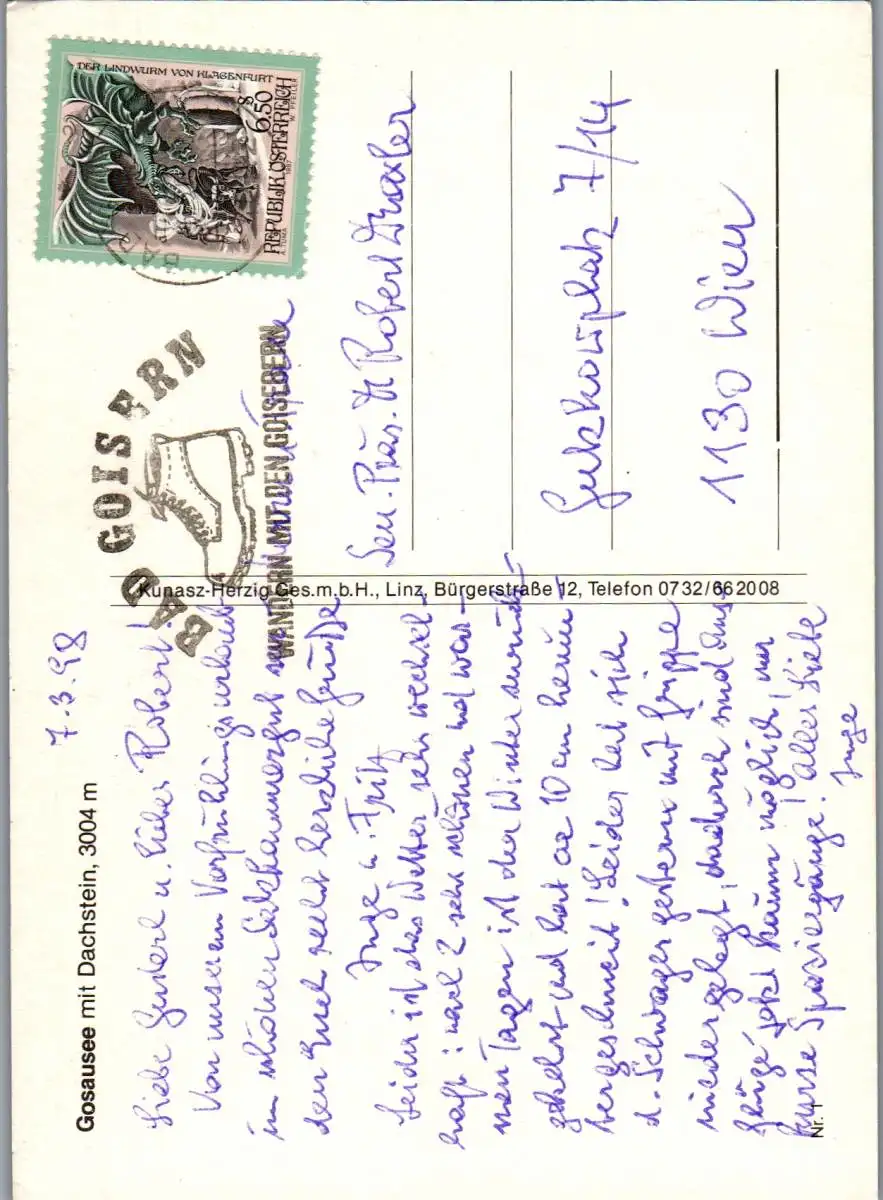 Gosausee mit Dachstein, 3004 m
7.3.98
Liebe Gusterl u. lieber Robert!
Von unserem Vorfrühlingsurlaub
im schönen Salzkammergut
den Euch recht herzliche Grüße
Inge u. Fritz
Leider ist das Wetter sehr wechsel-
haft: nach 2 sehr schönen und war-
men Tagen ist der Winter zurück-
gekehrt und hat ca 10 cm herun-
tergeschneit! Leider hat sich
d. Schwager gestern mit Grippe
niedergelegt, dadurch sind Aus-
flüge jetzt kaum möglich, nur
kurze Spaziergänge! Alles Liebe
Inge
Nr. 1
Kunasz-Herzig Ges.m.b.H., Linz, Bürgerstraße 12, Telefon 0732/662008
BAD GOISERN
WANDERN MIT DEN GOISERERN
DER LINDWURM VON KLAGENFURT
S 6.50
REPUBLIK ÖSTERREICH
A. TUMA 1997 W. PFEILER
Sen. Präs. Dr Robert Draxler
7/14
1130 Wien